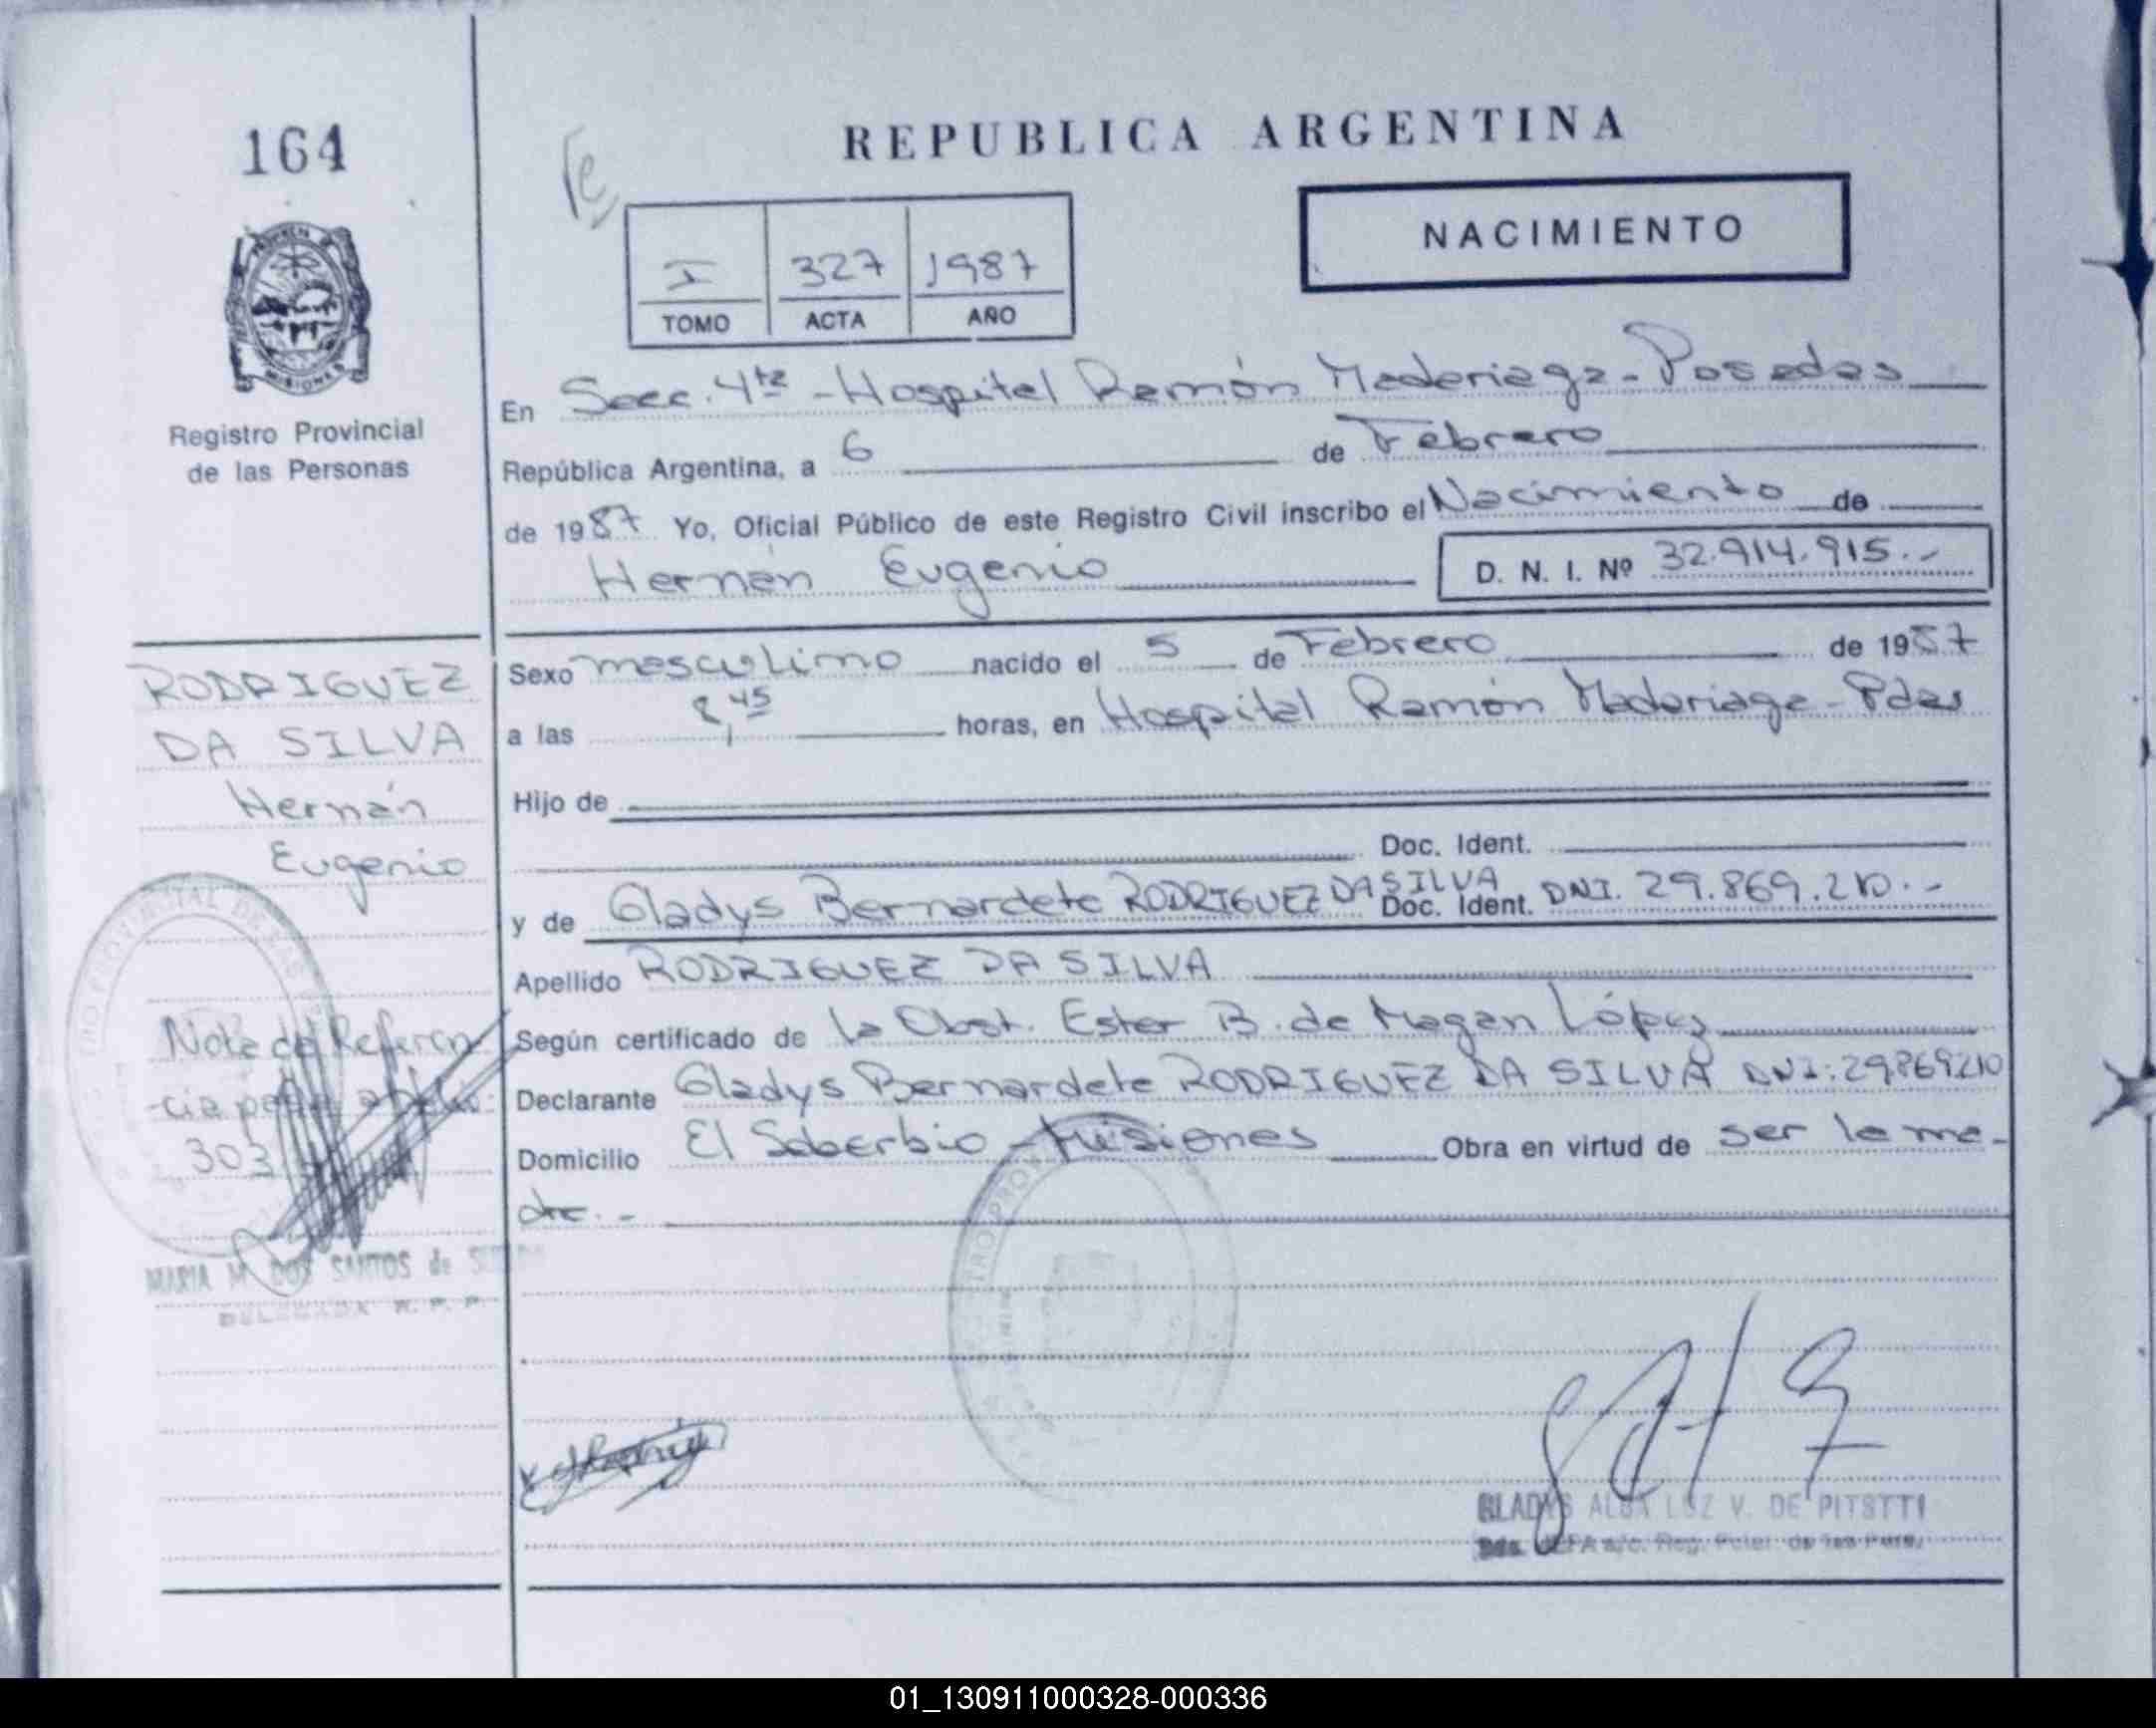 164
REPUBLICA ARGENTINA
NACIMIENTO
I 327 1987
TOMO ACTA AÑO
PROVINCIA DE
MISIONES
Registro Provincial
de las Personas
En Secc. 4ta - Hospital Ramón Madariaga - Posadas
República Argentina, a 6 de Febrero
de 1987 Yo, Oficial Público de este Registro Civil inscribo el Nacimiento de
Hernán Eugenio D. N. I. Nº 32.914.915.-
RODRIGUEZ
DA SILVA
Hernán
Eugenio
Sexo masculino nacido el 5 de Febrero de 1987
a las 8,45 horas, en Hospital Ramón Madariaga - Pdas
Hijo de
Doc. Ident.
y de Gladys Bernardete RODRIGUEZ DA SILVA Doc. Ident. DNI. 29.869.210.-
Apellido RODRIGUEZ DA SILVA
Según certificado de la Obst. Ester B. de Magan López
Declarante Gladys Bernardete RODRIGUEZ DA SILVA DNI: 29869210
Domicilio El Soberbio - Misiones Obra en virtud de ser la ma-
dre.-
Nota de Referen
-cia
303
MARIA M. DOS SANTOS de
DELEGADA R. P. P.
GLADYS ALBA LUZ V. DE
01_130911000328-000336